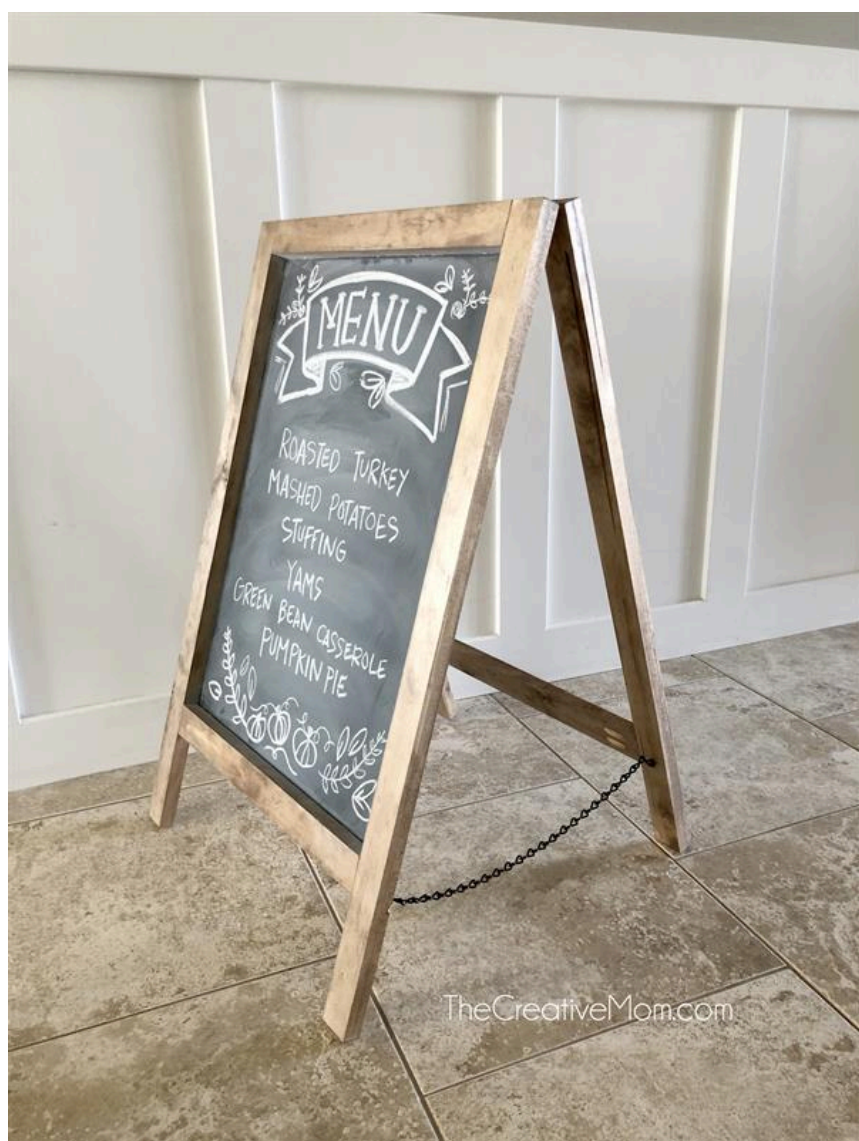 MENU
ROASTED TURKEY
MASHED POTATOES
STUFFING
YAMS
GREEN BEAN CASSEROLE
PUMPKIN PIE
TheCreativeMom.com